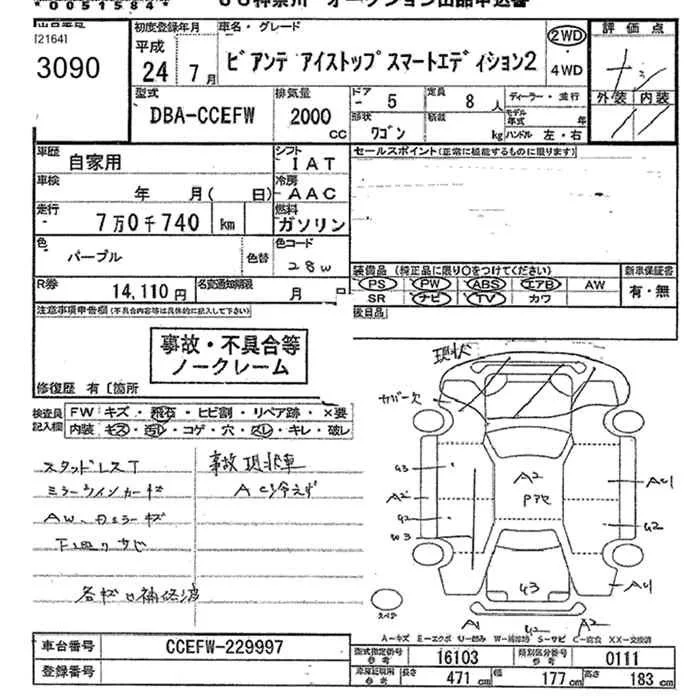 *00515844*
オークション出品申込書
[2164]
3090
初度登録年月
平成
24 7月
車名・グレード
ビアンテ アイストップ スマートエディション2
2WD
・
4WD
評価点
外装 内装
型式
DBA-CCEFW
排気量
2000 CC
ドア
- 5
定員
8 人
形状
ワゴン
積載
kg
ディーラー・並行
モデル年式 年
ハンドル 左・右
車歴
自家用
シフト
IAT
セールスポイント(正常に機能するものに限ります)
車検
年 月( 日)
冷房
AAC
走行
7万0千740 km
燃料
ガソリン
色
パープル
色替
色コード
28W
R券
14,110円
名変通知期限
月 日
装備品 (純正品に限り○をつけてください)
新車保証書
PS PW ABS エアB AW
SR ナビ TV カワ
有・無
後日品
注意事項申告欄(不具合内容等は具体的に記入して下さい)
事故・不具合等
ノークレーム
修復歴 有〔箇所
検査員
記入欄
FW キズ・飛石・ヒビ割・リペア跡・×要
内装 キズ・汚レ・コゲ・穴・スレ・キレ・破レ
スタッドレスT
事故現状車
ミラーウインカーキズ
AC冷えず
AW、
下回りサビ
現状
サポート欠
A2
Pアセ
U3
A2
U2
W3
AU1
U2
AU1
U3
A1
U2
A2
スペア
A-キズ E-エクボ U-凹み W-補修跡 S-サビ C-腐食 XX-交換済
車台番号
CCEFW-229997
登録番号
型式指定番号
参考
16103
類別区分番号
参考
0111
車庫証明用
参考
長さ
471
幅
177
高さ
183 cm